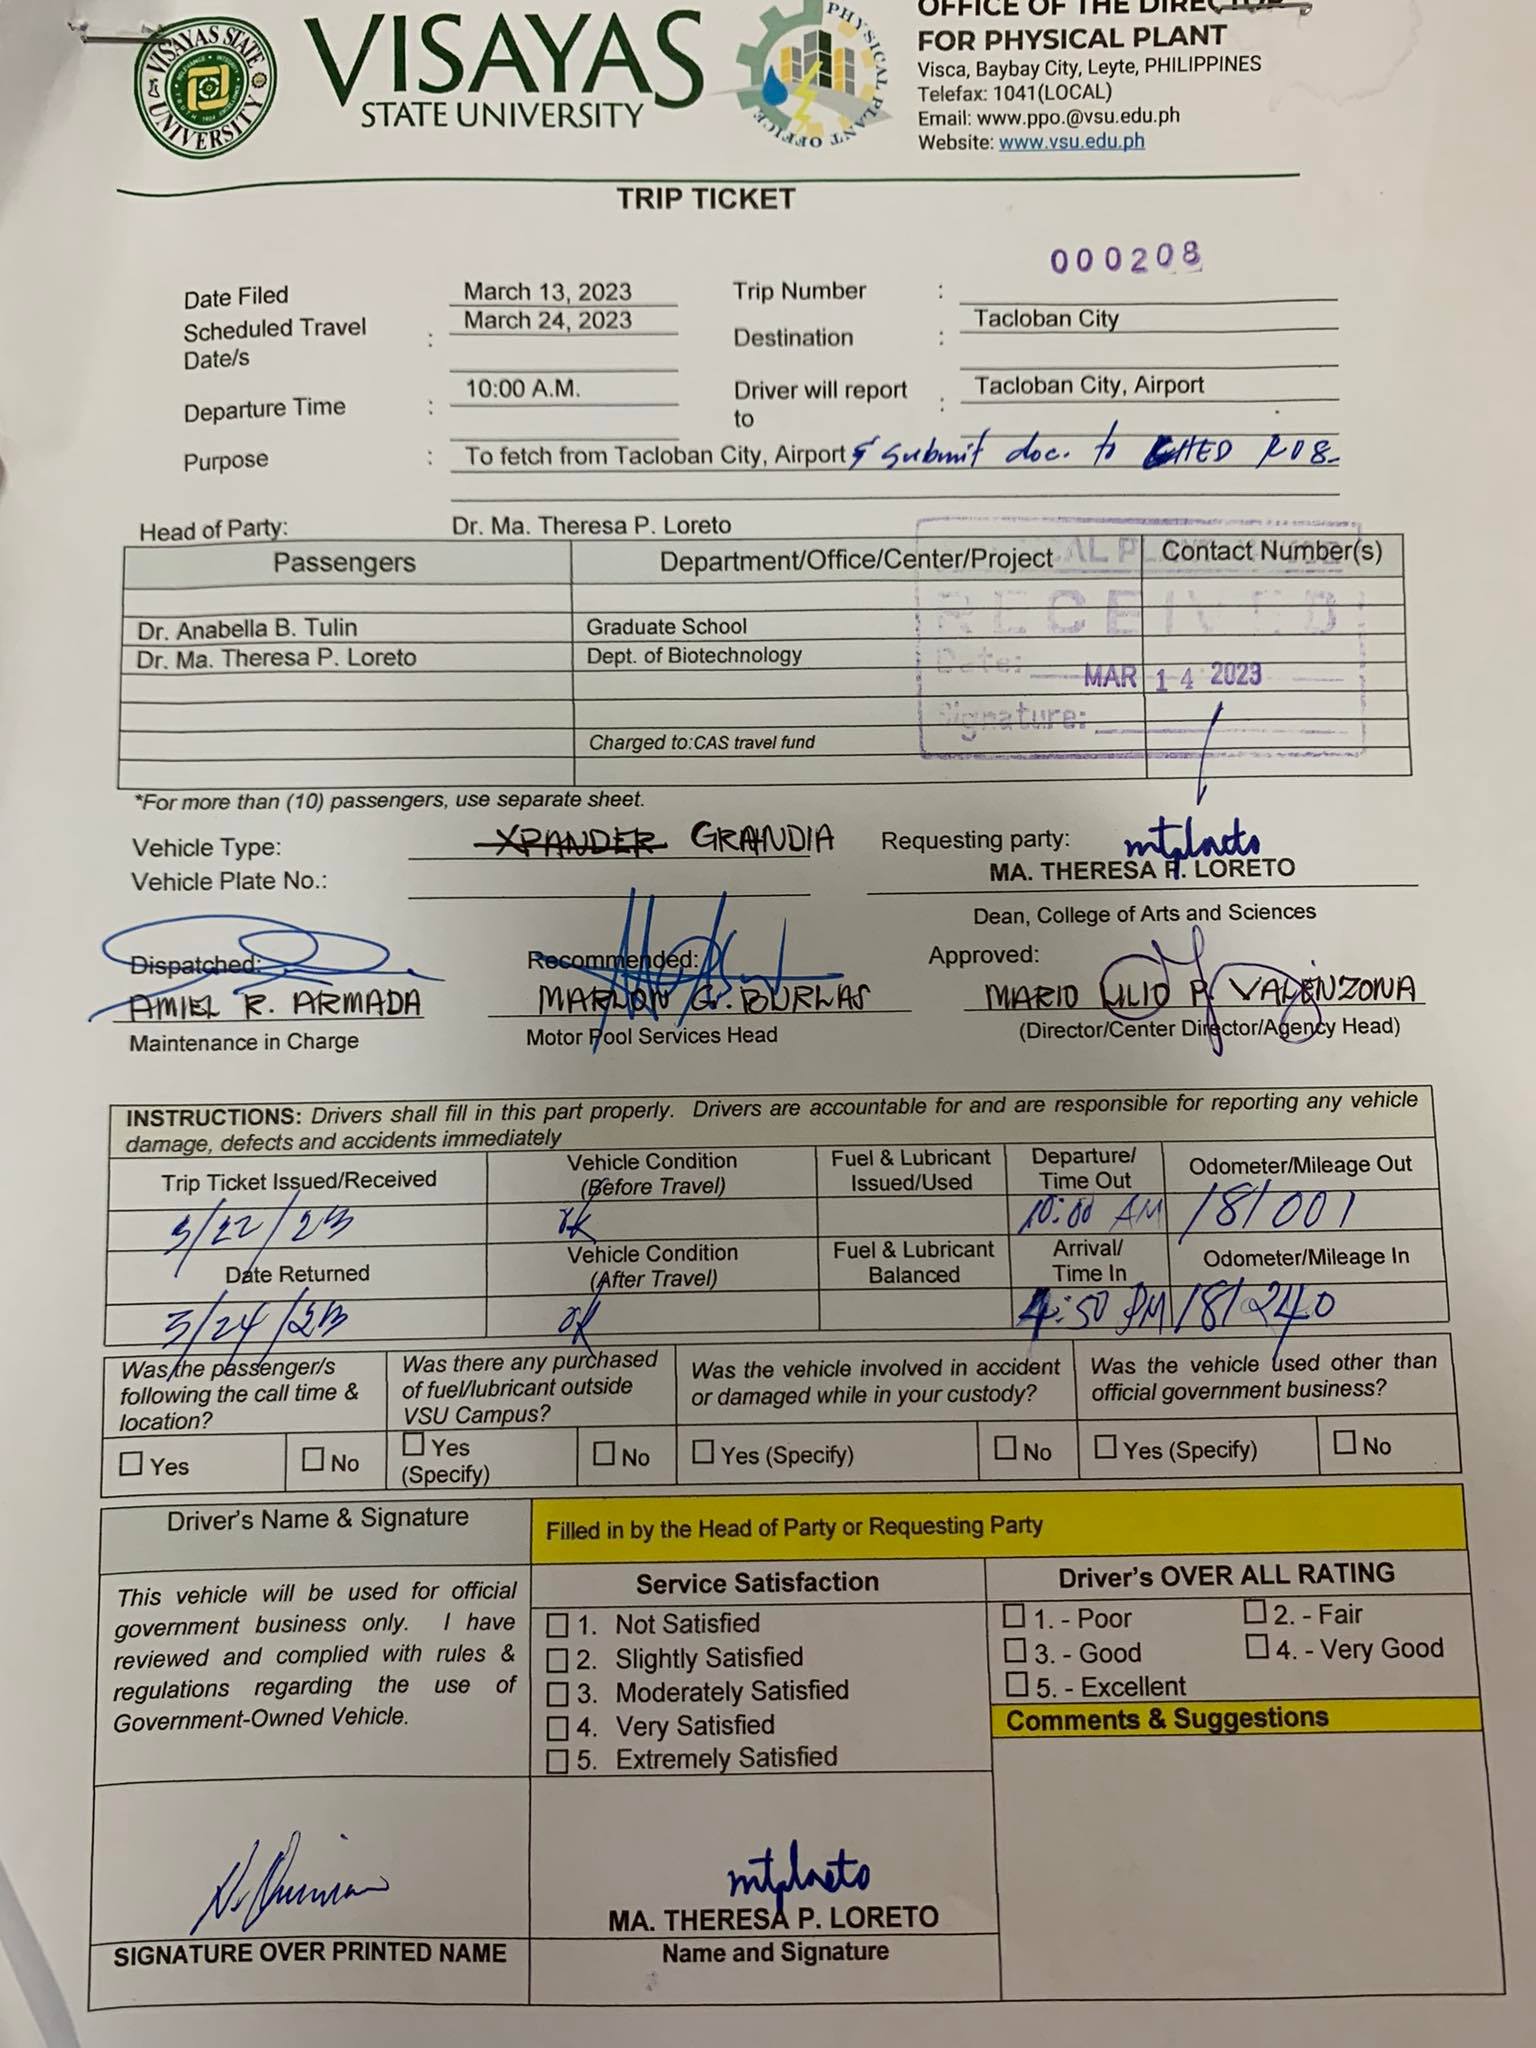 VISAYAS STATE UNIVERSITY
VISAYAS
STATE UNIVERSITY
PHYSICAL PLANT OFFICE
OFFICE OF THE DIRECTOR
FOR PHYSICAL PLANT
Visca, Baybay City, Leyte, PHILIPPINES
Telefax: 1041(LOCAL)
Email: www.ppo.@vsu.edu.ph
Website: www.vsu.edu.ph
TRIP TICKET
000208
Date Filed March 13, 2023 Trip Number :
Scheduled Travel Date/s : March 24, 2023 Destination : Tacloban City
Departure Time : 10:00 A.M. Driver will report to : Tacloban City, Airport
Purpose : To fetch from Tacloban City, Airport & submit doc. to CHED RO8.
Head of Party: Dr. Ma. Theresa P. Loreto
Passengers Department/Office/Center/Project Contact Number(s)
RECEIVED
Dr. Anabella B. Tulin Graduate School
Dr. Ma. Theresa P. Loreto Dept. of Biotechnology
Date: MAR 14 2023
Signature:
Charged to:CAS travel fund
*For more than (10) passengers, use separate sheet.
Vehicle Type: XPANDER GRANDIA Requesting party: mtploreto
Vehicle Plate No.: MA. THERESA P. LORETO
Dean, College of Arts and Sciences
Dispatched: Recommended: Approved:
AMIEL R. ARMADA MARLON G. BURLAS MARIO LILIO P. VALENZONA
Maintenance in Charge Motor Pool Services Head (Director/Center Director/Agency Head)
INSTRUCTIONS: Drivers shall fill in this part properly. Drivers are accountable for and are responsible for reporting any vehicle
damage, defects and accidents immediately
Trip Ticket Issued/Received Vehicle Condition (Before Travel) Fuel & Lubricant Issued/Used Departure/ Time Out Odometer/Mileage Out
3/22/23 ok 10:00 AM 181001
Date Returned Vehicle Condition (After Travel) Fuel & Lubricant Balanced Arrival/ Time In Odometer/Mileage In
3/24/23 ok 4:50 PM 181240
Was the passenger/s following the call time & location? Was there any purchased of fuel/lubricant outside VSU Campus? Was the vehicle involved in accident or damaged while in your custody? Was the vehicle used other than official government business?
Yes No Yes (Specify) No Yes (Specify) No Yes (Specify) No
Driver's Name & Signature Filled in by the Head of Party or Requesting Party
This vehicle will be used for official
government business only. I have
reviewed and complied with rules &
regulations regarding the use of
Government-Owned Vehicle.
Service Satisfaction
1. Not Satisfied
2. Slightly Satisfied
3. Moderately Satisfied
4. Very Satisfied
5. Extremely Satisfied
Driver's OVER ALL RATING
1. - Poor 2. - Fair
3. - Good 4. - Very Good
5. - Excellent
Comments & Suggestions
mtploreto
MA. THERESA P. LORETO
SIGNATURE OVER PRINTED NAME Name and Signature